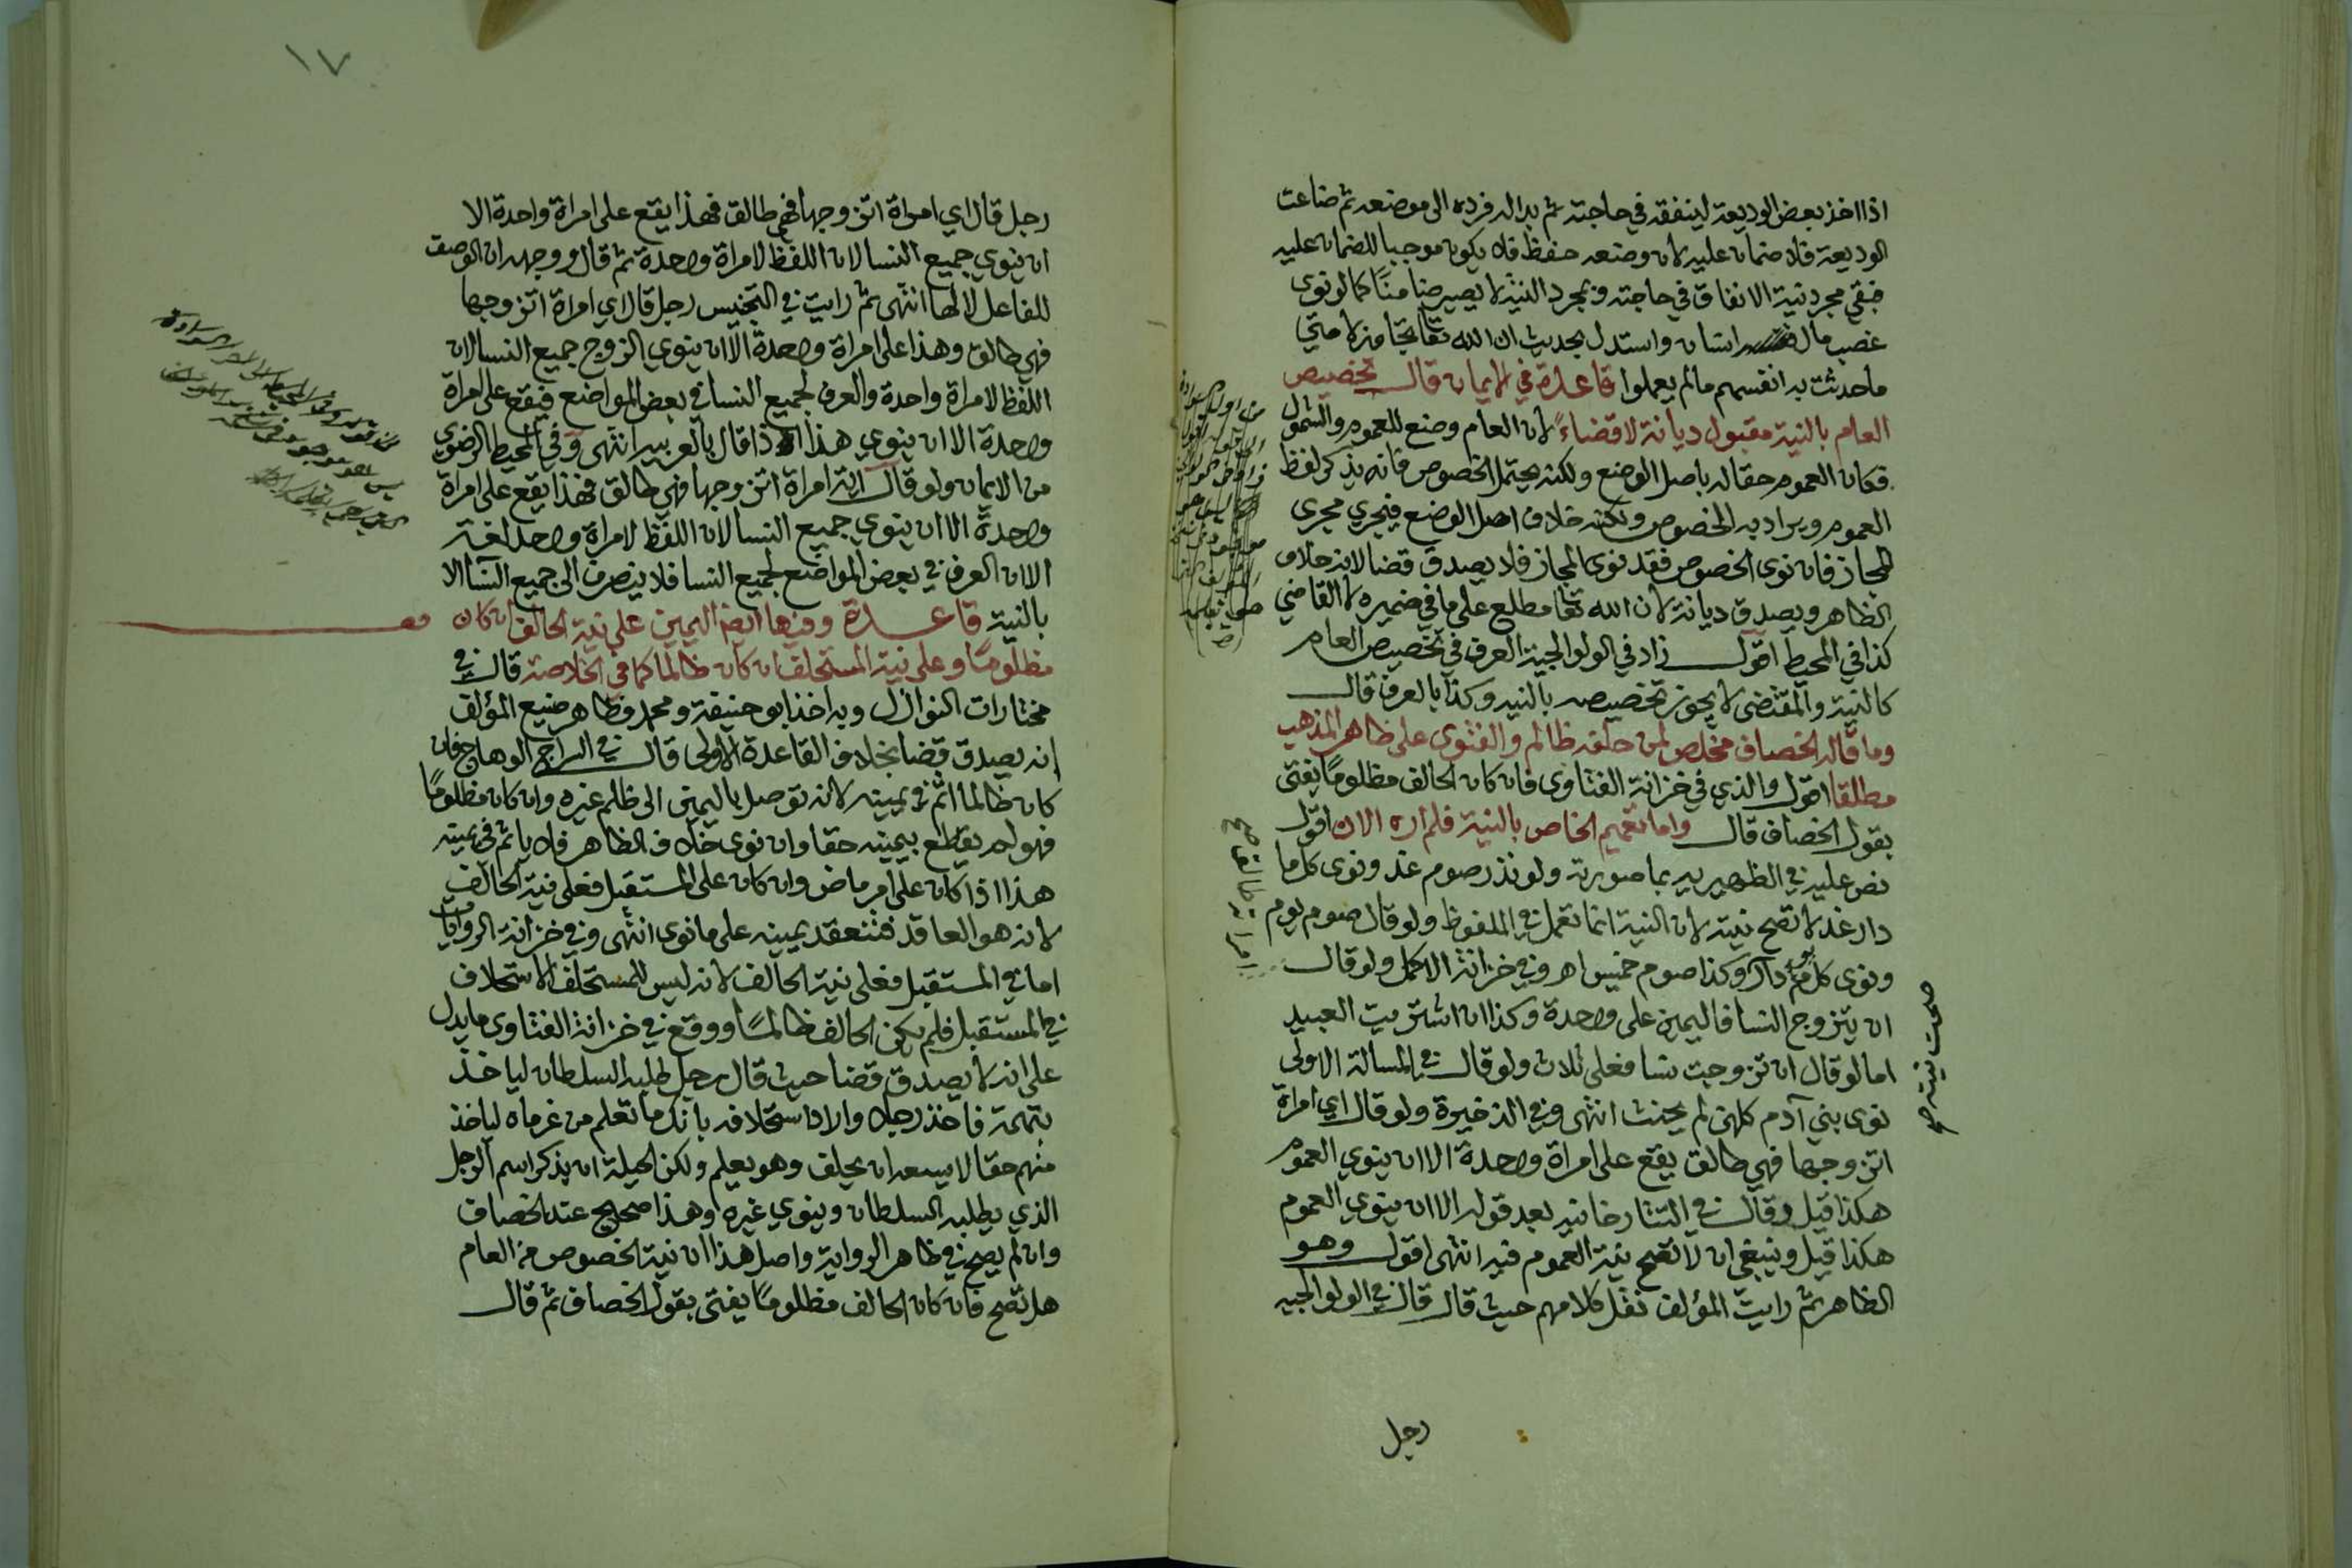 اذا اخذ بعض الوديعة لينفقه في حاجته ثم بدا له فرده الى موضعه ثم ضاعت
الوديعة فلا ضمان عليه لان وضعه حفظ فلا يكون موجبا للضمان عليه
فبقي مجرد نية الانفاق في حاجته وبمجرد النية لا يصير ضامنًا كما لو نوى
غصب مال انسان واستدل بحديث ان الله تعا تجاوز لامتي
ماحدثت به انفسهم مالم يعملوا قاعدة في الايمان قال تخصيص
العام بالنية مقبول ديانة لا قضاءً لان العام وضع للعموم والشمول
فكان العموم حقا له باصل الوضع ولكنه يحتمل الخصوص فانه يذكر لفظ
العموم ويراد به الخصوص ولكنه خلاف اصل الوضع فيجري مجرى
المجاز فان نوى الخصوص فقد نوى المجاز فلا يصدق قضا لانه خلاف
الظاهر ويصدق ديانة لان الله تعا مطلع على ما في ضميره لا القاضي
كذا في المحيط اقول زاد في الولوالجية العرف في تخصيص العام
كالنية والمقتضى لا يجوز تخصيصه بالنيه وكذا بالعرف قال
وما قاله الخصاف مخلص لمن حلفه ظالم والفتوى على ظاهر المذهب
مطلقا اقول والذي في خزانة الفتاوى فان كان الحالف مظلومًا يفتى
بقول الخصاف قال واما تعميم الخاص بالنية فلم اره الان اقول
نص عليه في الظهيريه بما صورته ولو نذر صوم غد ونوى كل ما
دار غد لا تصح نيته لان النية انما تعمل في الملفوظ ولو قال صوم يوم
ونوى كل يوم دار وكذا صوم خميس اهـ وفي خزانة الاكمل ولو قال
ان يتزوج النسا فاليمين على واحدة وكذا ان اشتريت العبيد
اما لو قال ان تزوجت نسا فعلى ثلاث ولو قال في المسالة الاولى
نوى بني آدم كلهن لم يحنث انتهى وفي الذخيرة ولو قال اي امراة
اتزوجها فهي طالق يقع على امراة واحدة الا ان ينوي العموم
هكذا قيل وقال في التتارخانيه بعد قوله الا ان ينوي العموم
هكذا قيل وينبغي ان لا تصح نية العموم فيه انتهى اقول وهو
الظاهر ثم رايت المؤلف نقل كلامهم حيث قال قال في الولوالجيه
رجل
صحت نيته صح
امراته طالق صح
١٧
رجل قال اي امراة اتزوجها فهي طالق فهذا يقع على امراة واحدة الا
ان ينوي جميع النسا لان اللفظ لامراة واحدة ثم قال ووجهه ان الوصف
للفاعل لا لها انتهى ثم رايت في التجنيس رجل قال اي امراة اتزوجها
فهي طالق وهذا على امراة واحدة الا ان ينوي الزوج جميع النسا لان
اللفظ لامراة واحدة والعرف لجميع النسا في بعض المواضع فيقع على امراة
واحدة الا ان ينوي هذا اذا قال بالعربيه انتهى وفي المحيط الرضوي
من الايمان ولو قال اية امراة اتزوجها فهي طالق فهذا يقع على امراة
واحدةً الا ان ينوي جميع النسا لان اللفظ لامراة واحد لغة
الا ان العرف في بعض المواضع لجميع النسا فلا ينصرف الى جميع النسا الا
بالنية قاعدة وفيها ايضا اليمين على نية الحالف ان كان
مظلومًا وعلى نية المستحلف ان كان ظالما كما في الخلاصة قال في
مختارات النوازل وبه اخذ ابو حنيفة ومحمد وظاهر صنيع المؤلف
انه يصدق قضا بخلاف القاعدة الاولى قال في السراج الوهاج فان
كان ظالما اثم في يمينه لانه توصل باليمين الى ظلم غيره وان كان مظلومًا
فهو لم يقطع بيمينه حقا وان نوى خلاف الظاهر فلا ياثم في يمينه
هذا اذا كان على امر ماض وان كان على المستقبل فعلى نية الحالف
لانه هو العاقد فتنعقد يمينه على ما نوى انتهى وفي خزانة الروايات
اما في المستقبل فعلى نية الحالف لانه ليس للمستحلف الاستحلاف
في المستقبل فلم يكن الحالف ظالمًا ووقع في خزانة الفتاوى ما يدل
على انه لا يصدق قضا حيث قال رجل طلبه السلطان لياخذ
بتهمة فاخذ رجلا واراد استحلافه بانك ما تعلم من غرماه لياخذ
منهم حقا لا يسعه ان يحلف وهو يعلم ولكن الحيلة ان يذكر اسم الرجل
الذي يطلبه السلطان وينوي غيره وهذا صحيح عند الخصاف
وان لم يصح في ظاهر الرواية واصل هذا ان نية الخصوص من العام
هل تصح فان كان الحالف مظلومًا يفتى بقول الخصاف ثم قال